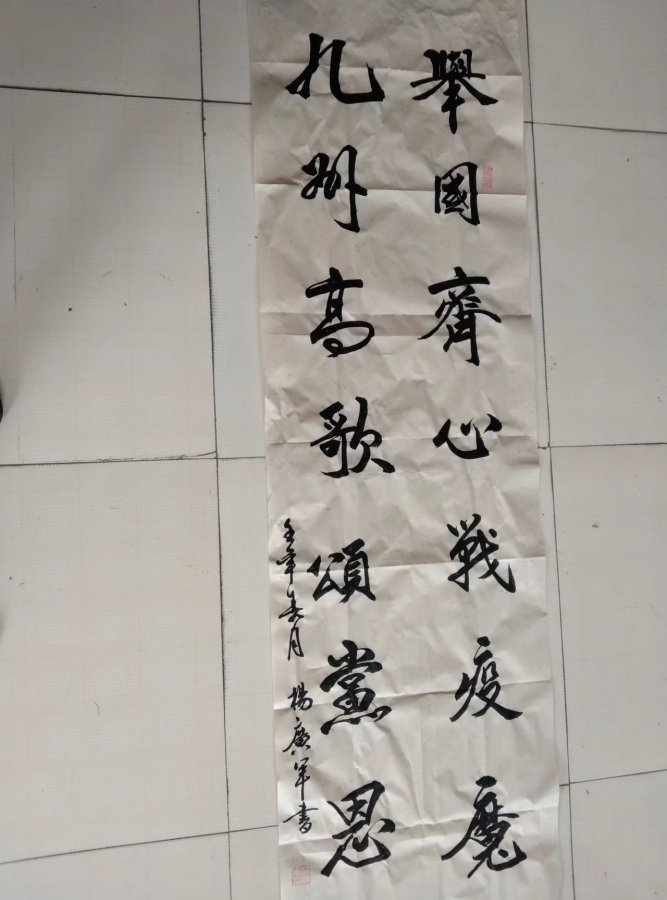 舉國齊心戰疫魔
九州高歌頌黨恩
壬寅春月 楊廣軍書